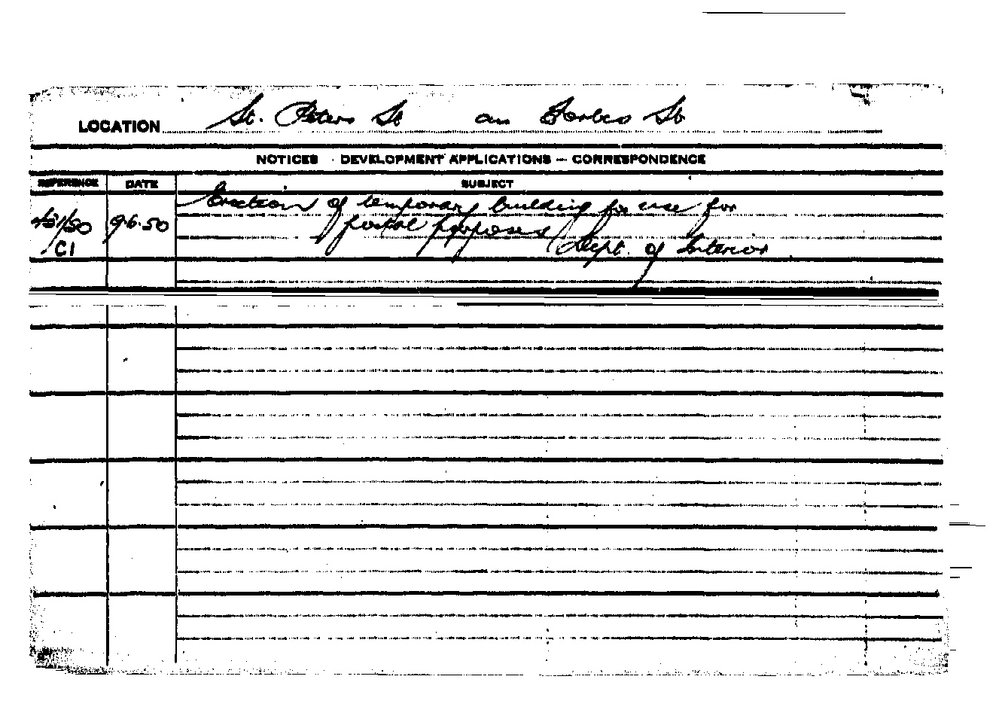 LOCATION St. Peters St an Forbes St
NOTICES - DEVELOPMENT APPLICATIONS — CORRESPONDENCE
REFERENCE DATE SUBJECT
Erection of temporary building for use for
9.6.50 postal purposes
/C1 Dept. of Interior